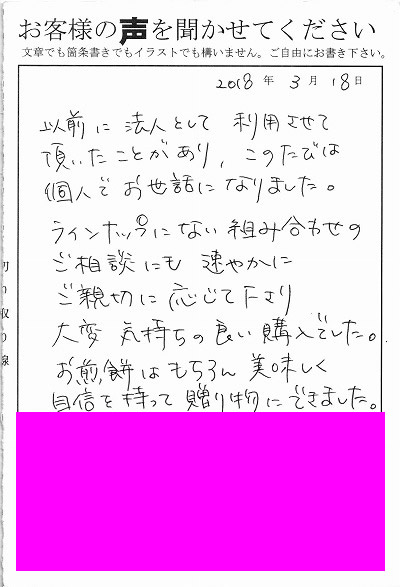 お客様の声を聞かせてください
文章でも箇条書きでもイラストでも構いません。ご自由にお書き下さい。
2018 年 3 月 18 日
以前に法人として利用させて
頂いたことがあり、このたびは
個人でお世話になりました。
ラインナップにない組み合わせの
ご相談にも速やかに
ご親切に応じて下さり
大変気持ちの良い購入でした。
お煎餅はもちろん美味しく
自信を持って贈り物にできました。